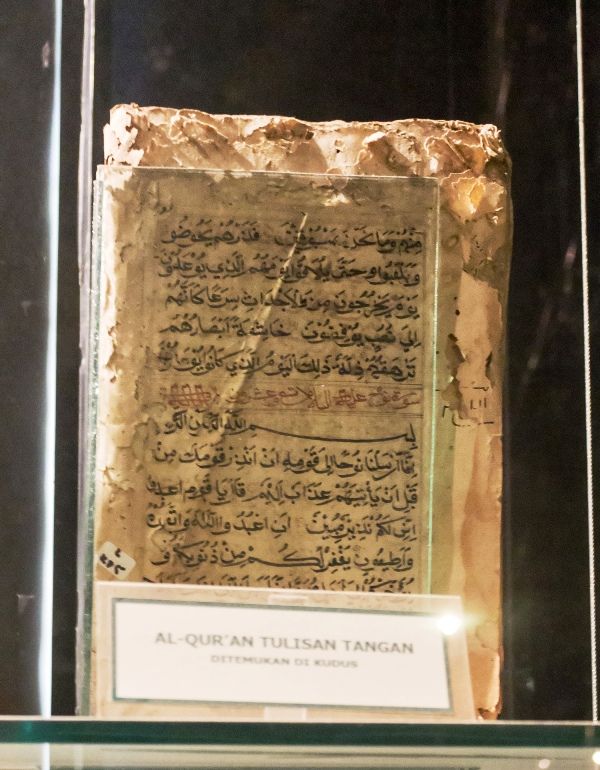 مِنْهُمْ وَمَا نَحْنُ بِمَسْبُوقِينَ فَذَرْهُمْ يَخُوضُو
وَيَلْعَبُوا حَتَّى يُلَاقُوا يَوْمَهُمُ الَّذِي يُوعَدُونَ
يَوْمَ يَخْرُجُونَ مِنَ الْأَجْدَاثِ سِرَعًا كَأَنَّهُمْ
إِلَى نُصُبٍ يُوفِضُونَ خَاشِعَةً أَبْصَارُهُمْ
تَرْهَقُهُمْ ذِلَّةٌ ذَلِكَ الْيَوْمُ الَّذِي كَانُوا يُوعَدُونَ
سورة نوح عليه السلام
بسم الله الرحمن الرحيم
إِنَّا أَرْسَلْنَا نُوحًا إِلَى قَوْمِهِ أَنْ أَنْذِرْ قَوْمَكَ مِنْ
قَبْلِ أَنْ يَأْتِيَهُمْ عَذَابٌ أَلِيمٌ قَالَ يَا قَوْمِ
إِنِّي لَكُمْ نَذِيرٌ مُبِينٌ أَنِ اعْبُدُوا اللَّهَ وَاتَّقُوهُ
وَأَطِيعُونِ يَغْفِرْ لَكُمْ مِنْ ذُنُوبِكُمْ وَ
AL-QUR'AN TULISAN TANGAN
DITEMUKAN DI KUDUS